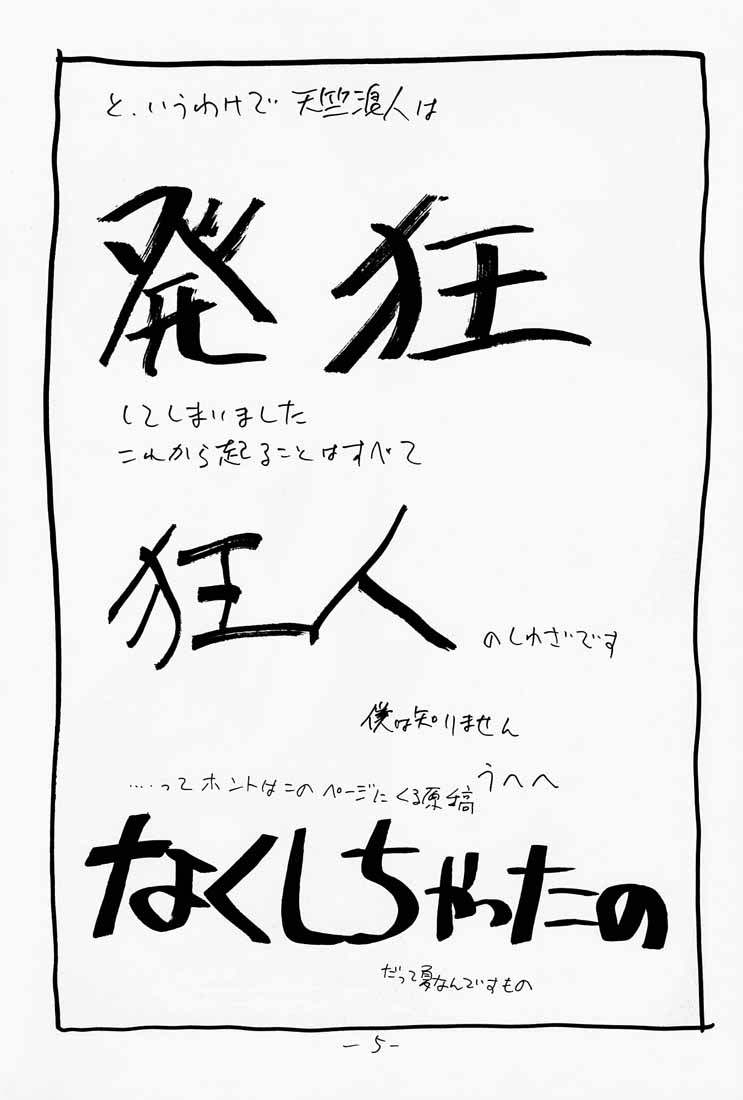 と、いうわけで 天竺浪人は
発狂
してしまいました
これから起ることはすべて
狂人のしわざです
僕は知りません
うへへ
....ってホントはこのページにくる原稿
なくしちゃったの
だって夏なんですもの
-5-